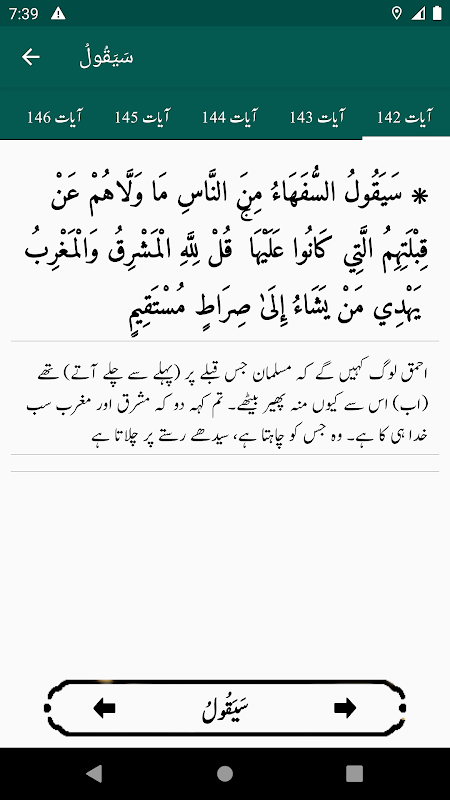 7:39
سَيَقُولُ
آیات 142 آیات 143 آیات 144 آیات 145 آیات 146
* سَيَقُولُ السُّفَهَاءُ مِنَ النَّاسِ مَا وَلَّاهُمْ عَنْ
قِبْلَتِهِمُ الَّتِي كَانُوا عَلَيْهَا ۚ قُلْ لِلَّهِ الْمَشْرِقُ وَالْمَغْرِبُ
يَهْدِي مَنْ يَشَاءُ إِلَىٰ صِرَاطٍ مُسْتَقِيمٍ
احمق لوگ کہیں گے کہ مسلمان جس قبلے پر (پہلے سے چلے آتے) تھے
(اب) اس سے کیوں منہ پھیر بیٹھے۔ تم کہہ دو کہ مشرق اور مغرب سب
خدا ہی کا ہے۔ وہ جس کو چاہتا ہے، سیدھے رستے پر چلاتا ہے
سَيَقُولُ